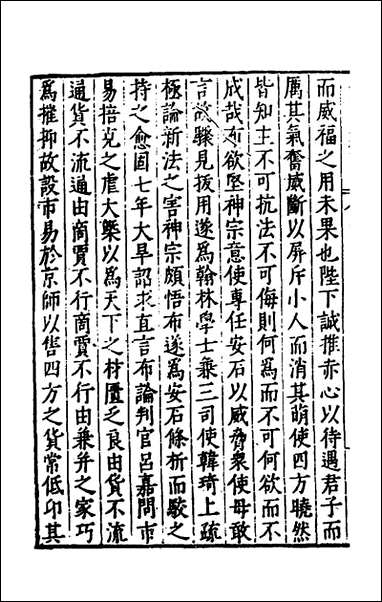 而威福之用未果也陛下誠推赤心以待遇君子而
厲其氣奮威斷以屏斥小人而消其萌使四方曉然
皆知主不可抗法不可侮則何為而不可何欲而不
成哉布欲堅神宗意使專任安石以威脅衆使毋敢
言故驟見拔用遂為翰林學士兼三司使韓琦上疏
極論新法之害神宗頗悟布遂為安石條析而駁之
持之愈固七年大旱詔求直言布論判官呂嘉問市
易掊克之虐大槩以為天下之材匱乏良由貨不流
通貨不流通由商賈不行商賈不行由兼并之家巧
爲摧抑故設市易於京師以售四方之貨常低卬其